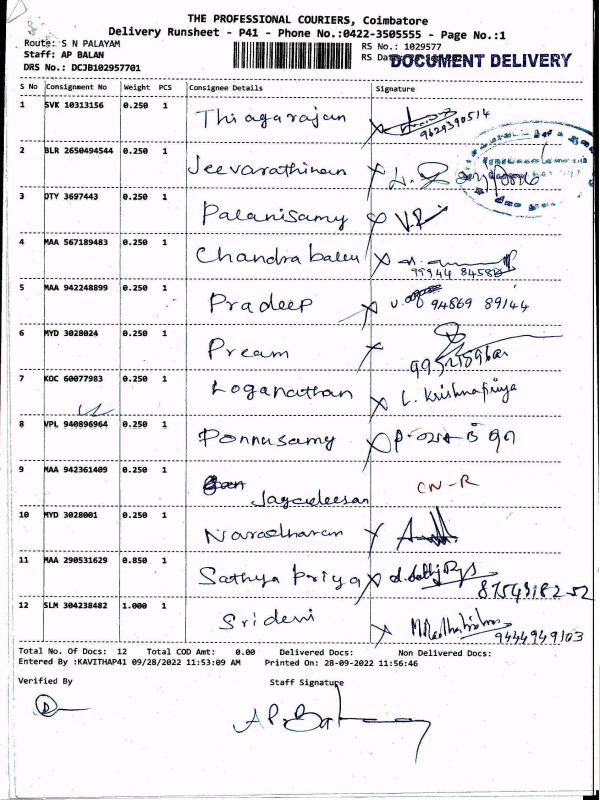 THE PROFESSIONAL COURIERS, Coimbatore
Delivery Runsheet - P41 - Phone No.:0422-3505555 - Page No.:1
Route: S N PALAYAM
RS No.: 1029577
Staff: AP BALAN
RS Dat
DOCUMENT DELIVERY
DRS No.: DCJB102957701
S No Consignment No Weight PCS Consignee Details Signature
1 SVK 10313156 0.250 1 Thiagarajan 9629390514
2 BLR 2650494544 0.250 1 Jeevarathinam
3 DTY 3697443 0.250 1 Palanisamy
4 MAA 567189483 0.250 1 Chandra balan
5 MAA 942248899 0.250 1 Pradeep 94869 89144
6 MYD 3028024 0.250 1 Pream
7 KOC 60077983 0.250 1 Loganathan L. Krishnapriya
8 VPL 940896964 0.250 1 Ponnusamy
9 MAA 942361409 0.250 1 Jagadeesan CN-R
10 MYD 3028001 0.250 1 Naradharan
11 MAA 290531629 0.850 1 Sathya Priya
12 SLM 304238482 1.000 1 Sridevi 9444949103
Total No. Of Docs: 12 Total COD Amt: 0.00 Delivered Docs: Non Delivered Docs:
Entered By :KAVITHAP41 09/28/2022 11:53:09 AM Printed On: 28-09-2022 11:56:46
Verified By Staff Signature